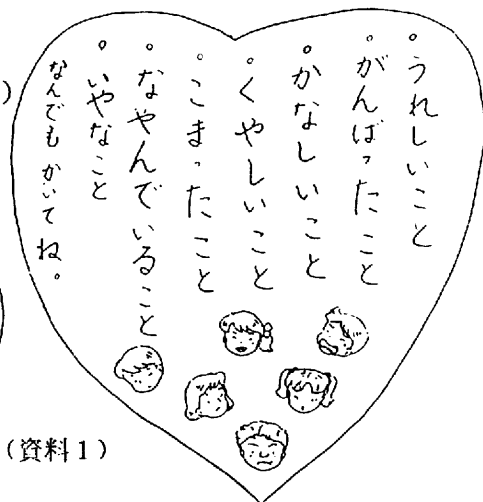 。うれしいこと
。がんばったこと
。かなしいこと
。くやしいこと
。こまったこと
。なやんでいること
。いやなこと
なんでもかいてね。
(資料1)